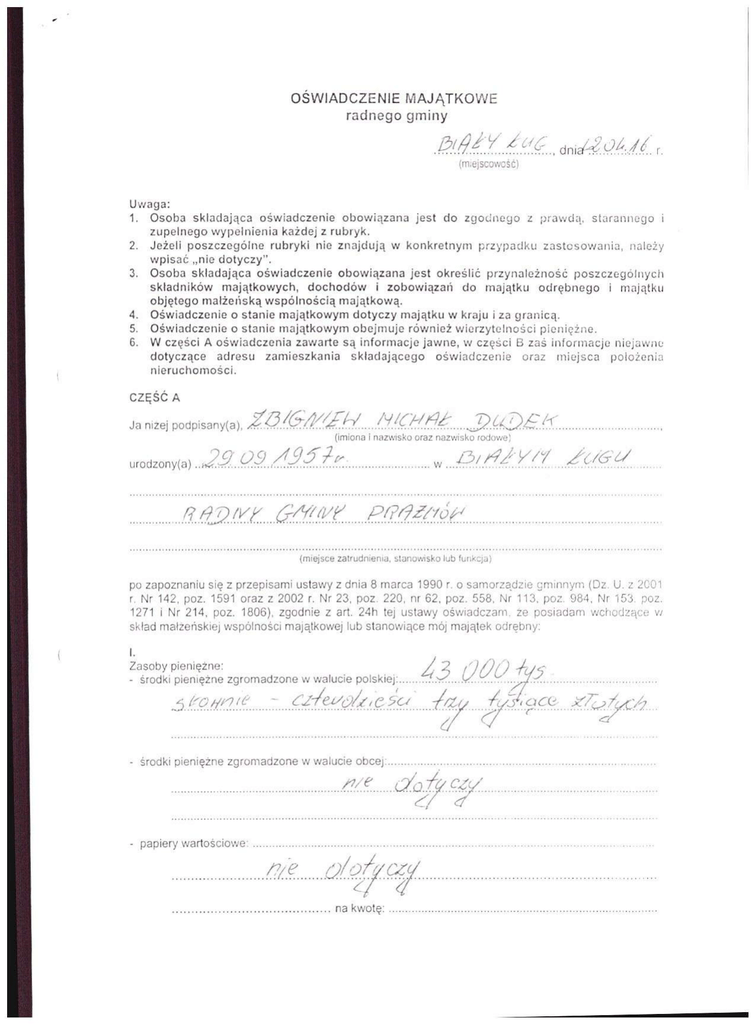 OŚWIADCZENIE MAJĄTKOWE
radnego gminy
BIAŁY ŁUG, dnia 12.04.16 r.
(miejscowość)
Uwaga:
1. Osoba składająca oświadczenie obowiązana jest do zgodnego z prawdą, starannego i
zupełnego wypełnienia każdej z rubryk.
2. Jeżeli poszczególne rubryki nie znajdują w konkretnym przypadku zastosowania, należy
wpisać „nie dotyczy".
3. Osoba składająca oświadczenie obowiązana jest określić przynależność poszczególnych
składników majątkowych, dochodów i zobowiązań do majątku odrębnego i majątku
objętego małżeńską wspólnością majątkową.
4. Oświadczenie o stanie majątkowym dotyczy majątku w kraju i za granicą.
5. Oświadczenie o stanie majątkowym obejmuje również wierzytelności pieniężne.
6. W części A oświadczenia zawarte są informacje jawne, w części B zaś informacje niejawne
dotyczące adresu zamieszkania składającego oświadczenie oraz miejsca położenia
nieruchomości.
CZĘŚĆ A
Ja niżej podpisany(a), ZBIGNIEW MICHAŁ DUDEK,
(imiona i nazwisko oraz nazwisko rodowe)
urodzony(a) 29 09 1957r. w BIAŁYM ŁUGU
RADNY GMINY PRAŻMÓW
(miejsce zatrudnienia, stanowisko lub funkcja)
po zapoznaniu się z przepisami ustawy z dnia 8 marca 1990 r. o samorządzie gminnym (Dz. U. z 2001
r. Nr 142, poz. 1591 oraz z 2002 r. Nr 23, poz. 220, nr 62, poz. 558, Nr 113, poz. 984, Nr 153, poz.
1271 i Nr 214, poz. 1806), zgodnie z art. 24h tej ustawy oświadczam, że posiadam wchodzące w
skład małżeńskiej wspólności majątkowej lub stanowiące mój majątek odrębny:
I.
Zasoby pieniężne:
- środki pieniężne zgromadzone w walucie polskiej: 43 000 tys.
słownie - czterdzieści trzy tysiące złotych
- środki pieniężne zgromadzone w walucie obcej:
nie dotyczy
- papiery wartościowe:
nie dotyczy
na kwotę: